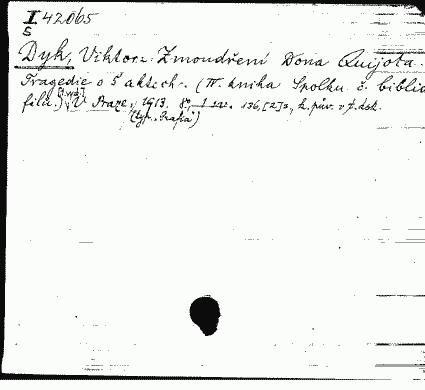 I 42065
S
Dyk, Viktor: Zmoudření Dona Quijota.
Tragedie o 5 aktech. (IV. kniha Spolku č. biblio
filů.) [1. vyd.] V Praze, 1913. 8°, 136, [2] s,
(typ. "Grafia")